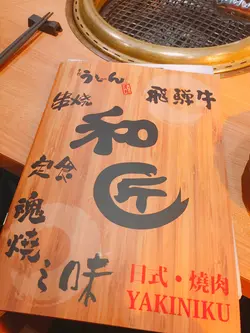 うどん
串焼
飛騨牛
和匠
定食
魂焼之味
日式・燒肉
YAKINIKU